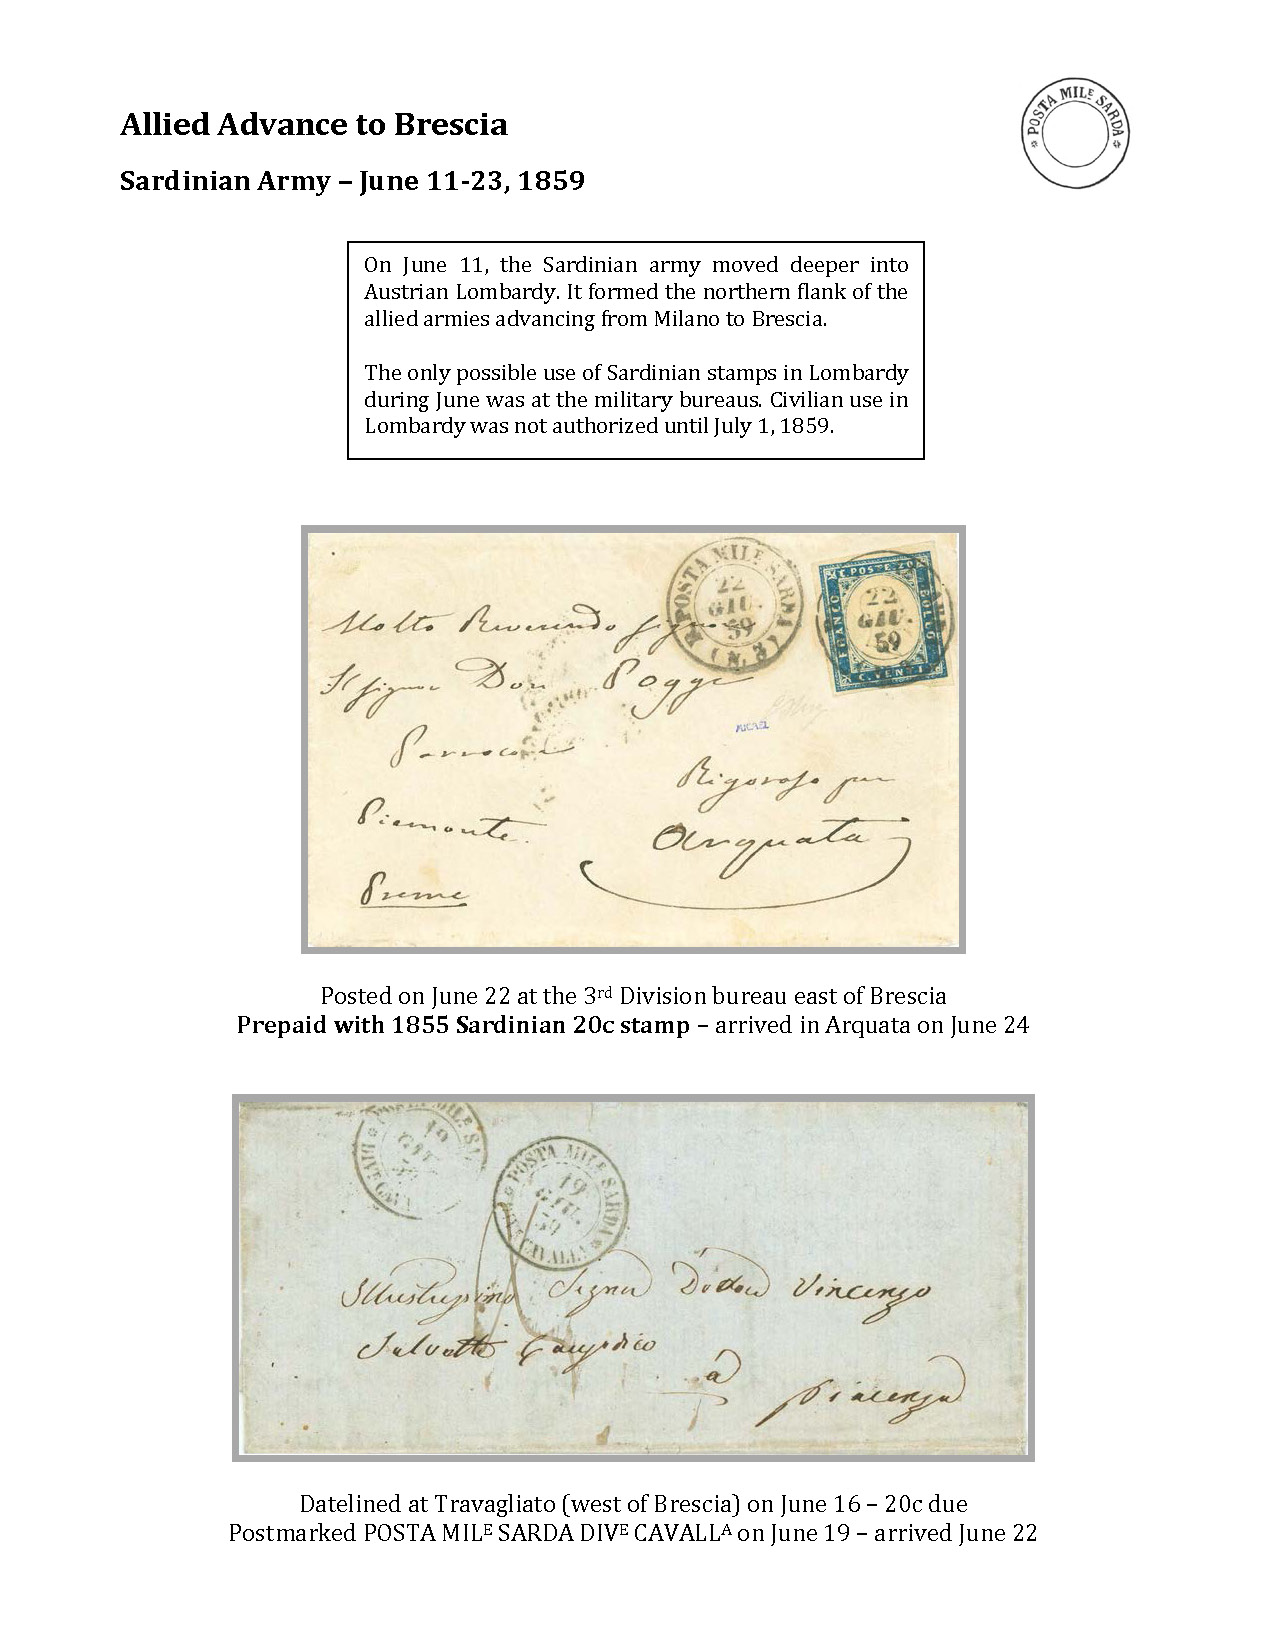 Allied Advance to Brescia
* POSTA MILE SARDA *
Sardinian Army – June 11-23, 1859
On June 11, the Sardinian army moved deeper into
Austrian Lombardy. It formed the northern flank of the
allied armies advancing from Milano to Brescia.
The only possible use of Sardinian stamps in Lombardy
during June was at the military bureaus. Civilian use in
Lombardy was not authorized until July 1, 1859.
R. POSTA MILE SARDA (N. 3)
22
GIU.
59
C. POSTE 20
FRANCO
BOLLO
C. VENTI
22
GIU.
59
Molto Reverendo Signore
Il Signor Don Poggi
Parroco di
Rigoroso per
Piemonte.
Arquata
Preme
Posted on June 22 at the 3rd Division bureau east of Brescia
Prepaid with 1855 Sardinian 20c stamp – arrived in Arquata on June 24
POSTA MILE SA
DIVE CAVA
19
POSTA MILE SARDA
DIVE CAVALLA
19
GIU.
59
Signor Dottore Vincenzo
Salvotti
à
Piacenza
Datelined at Travagliato (west of Brescia) on June 16 – 20c due
Postmarked POSTA MILE SARDA DIVE CAVALLA on June 19 – arrived June 22